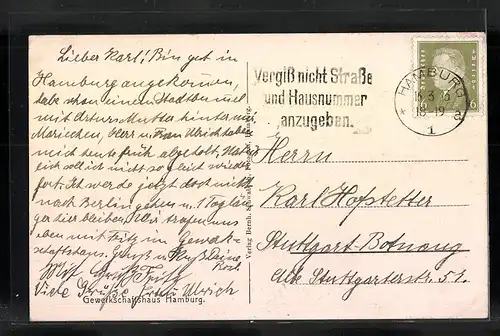 Lieber Karl! Bin gut in
Hamburg angekommen,
habe schon einen Stadtbummel
mit Arturs Mutter hinter mir.
Mariechen, Herr u. Frau Ulrich haben
mich heute früh abgeholt.
soll ich nicht so gleich wieder
fort. Ich werde jetzt doch nicht
nach Berlin gehen u. 1 Tag
hier bleiben. Wir trafen uns
eben mit Fritz im Gewerk-
schaftshaus. Gruß u. Kuß Deine
Rosl
Gruß Fritz
Viele Grüße Ulrich
Gewerkschaftshaus Hamburg.
Verlag Bernh.
Vergiß nicht Straße
und Hausnummer
anzugeben.
HAMBURG
18-19
1
6
Herrn
Karl Hofstetter
Stuttgart-Botnang
Alte Stuttgarterstr. 51.